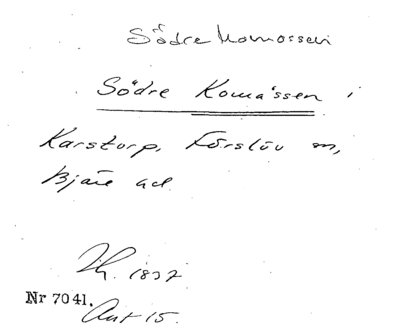 Södre Komossen
Södre Komåssen i
Karstorp, Förslöv sn,
Bjäre hd
Nr 7041.